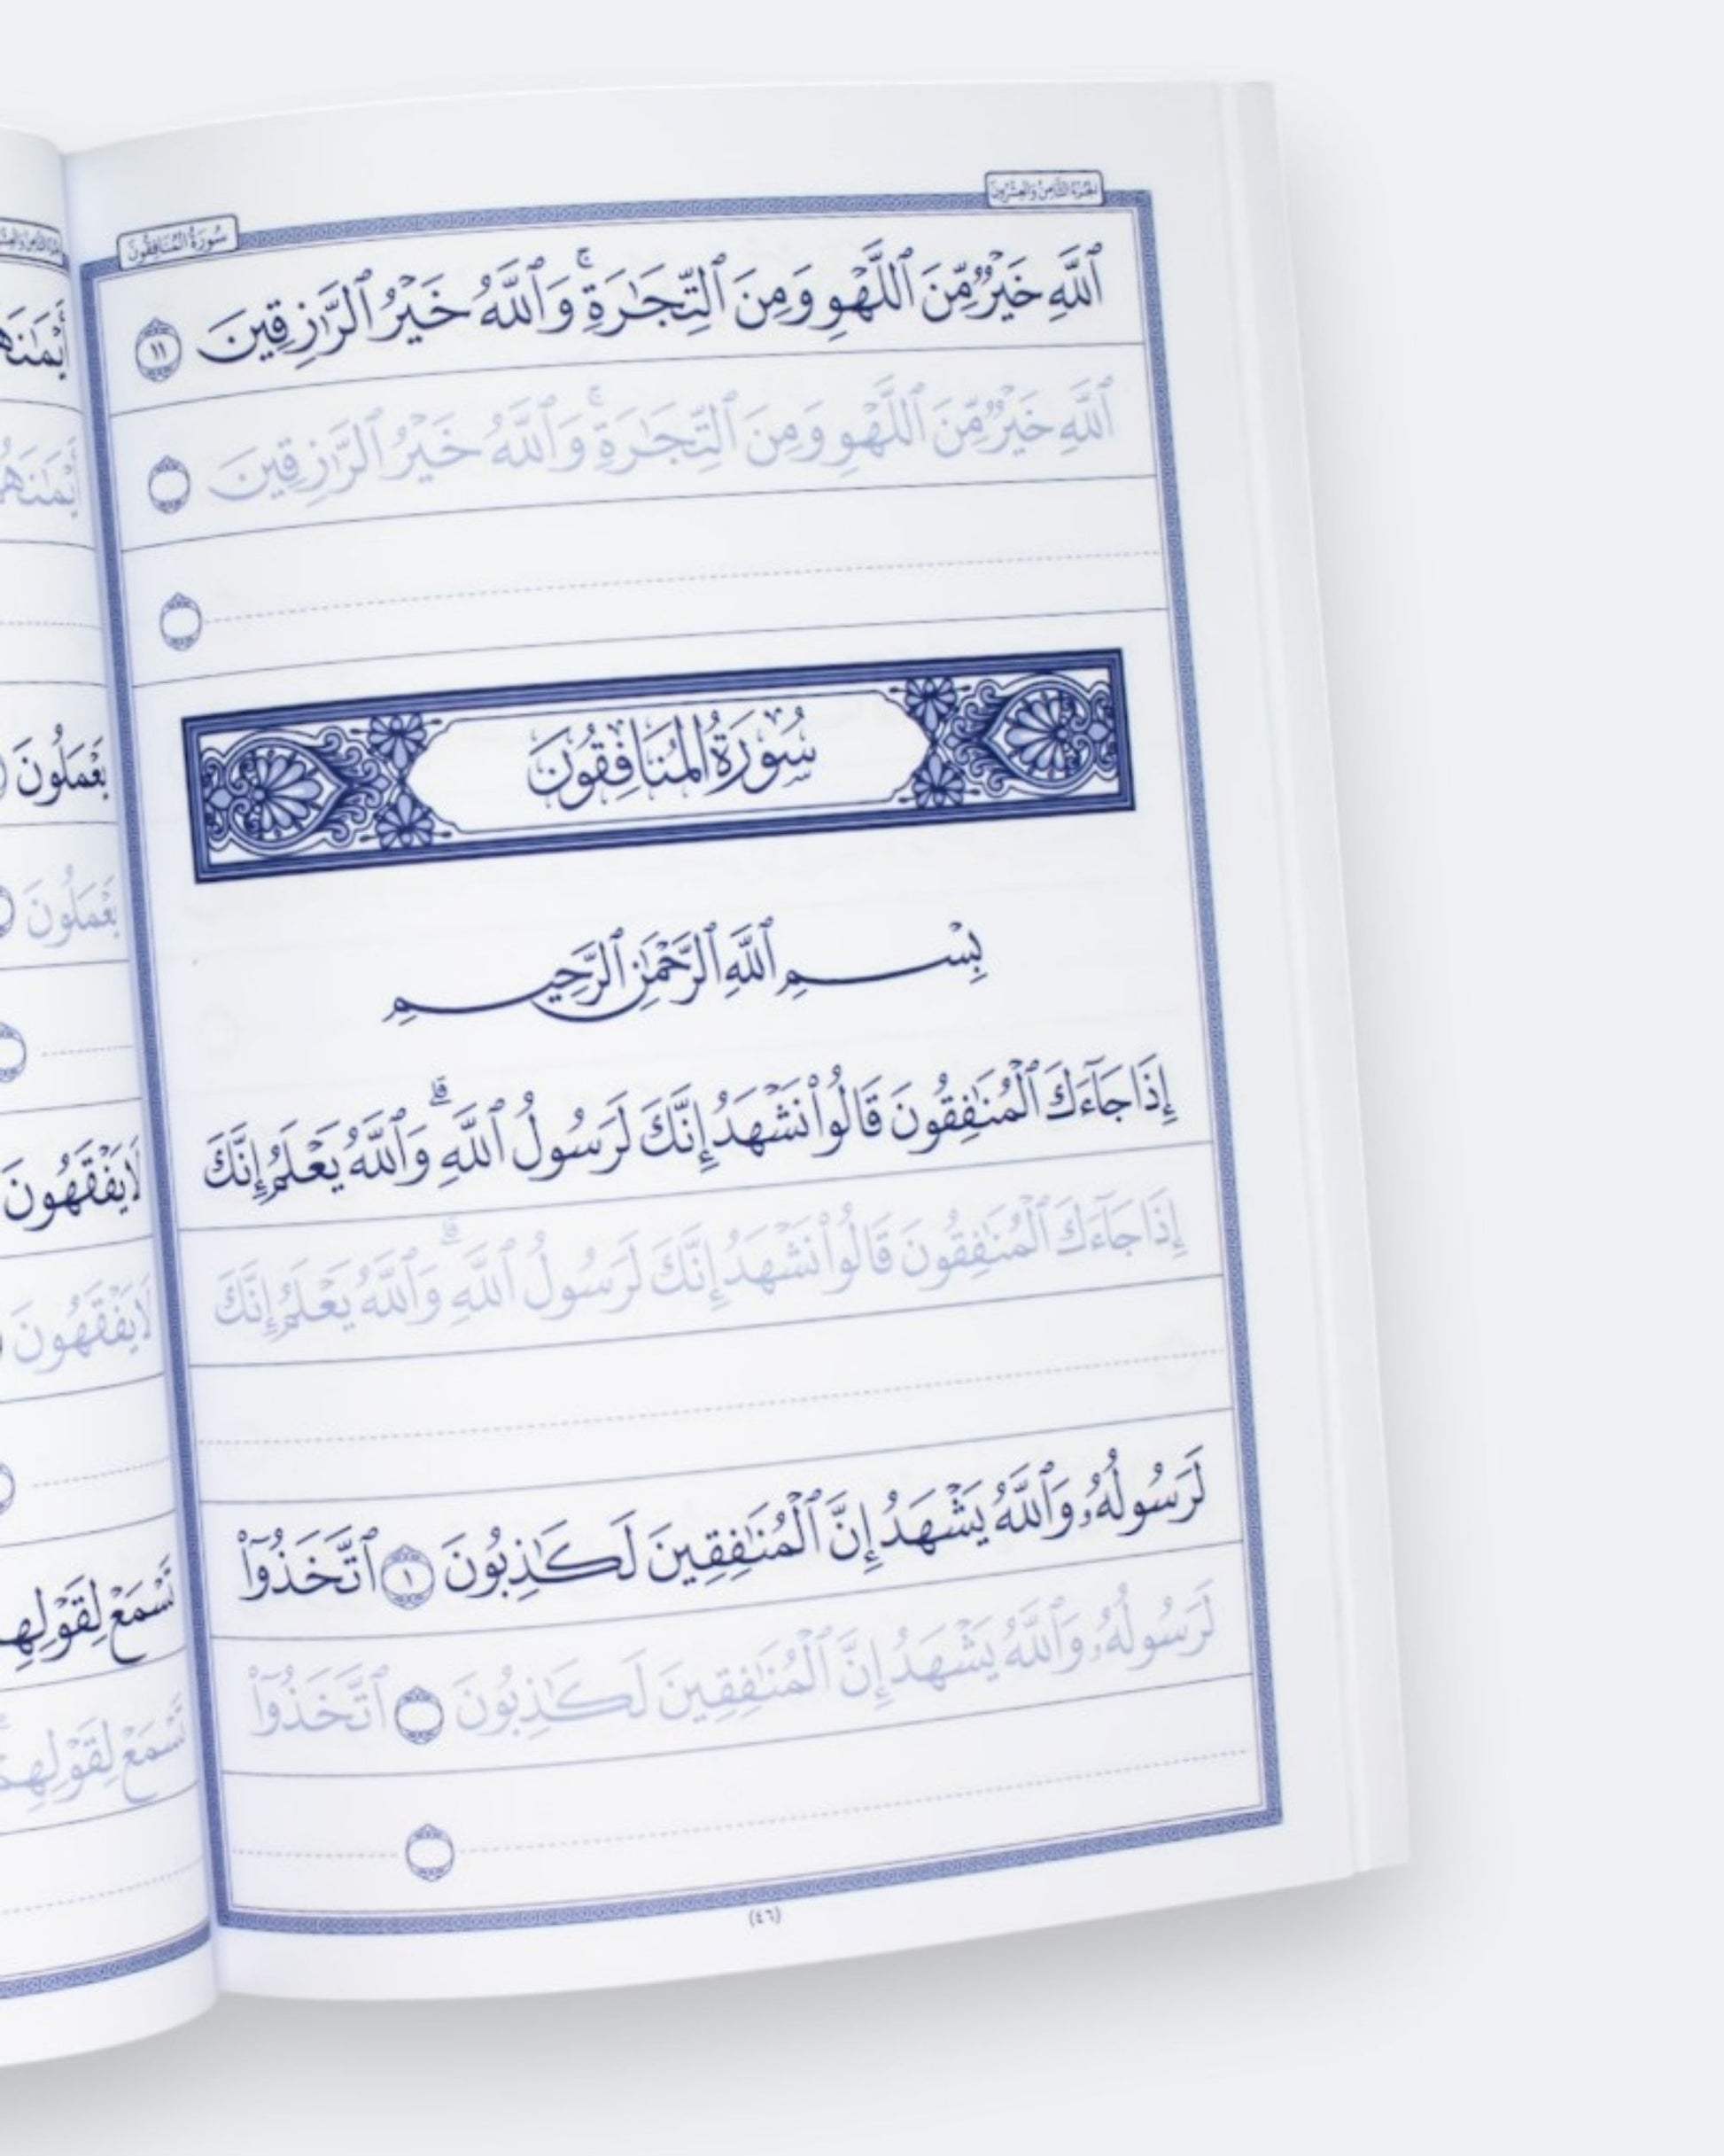 الجزء الثامن والعشرون
سورة المنافقون
ٱللَّهِ خَيْرٌ مِّنَ ٱللَّهْوِ وَمِنَ ٱلتِّجَـٰرَةِ ۚ وَٱللَّهُ خَيْرُ ٱلرَّٰزِقِينَ ١١
ٱللَّهِ خَيْرٌ مِّنَ ٱللَّهْوِ وَمِنَ ٱلتِّجَـٰرَةِ ۚ وَٱللَّهُ خَيْرُ ٱلرَّٰزِقِينَ
سُورَةُ المُنَافِقُونَ
بِسْمِ ٱللَّهِ ٱلرَّحْمَـٰنِ ٱلرَّحِيمِ
إِذَا جَآءَكَ ٱلْمُنَـٰفِقُونَ قَالُوا۟ نَشْهَدُ إِنَّكَ لَرَسُولُ ٱللَّهِ ۗ وَٱللَّهُ يَعْلَمُ إِنَّكَ
إِذَا جَآءَكَ ٱلْمُنَـٰفِقُونَ قَالُوا۟ نَشْهَدُ إِنَّكَ لَرَسُولُ ٱللَّهِ ۗ وَٱللَّهُ يَعْلَمُ إِنَّكَ
لَرَسُولُهُۥ وَٱللَّهُ يَشْهَدُ إِنَّ ٱلْمُنَـٰفِقِينَ لَكَـٰذِبُونَ ١ ٱتَّخَذُوٓا۟
لَرَسُولُهُۥ وَٱللَّهُ يَشْهَدُ إِنَّ ٱلْمُنَـٰفِقِينَ لَكَـٰذِبُونَ ٱتَّخَذُوٓا۟
(٤٦)
يَعْمَلُونَ
يَعْمَلُونَ
لَا يَفْقَهُونَ
لَا يَفْقَهُونَ
تَسْمَعْ لِقَوْلِهِ
تَسْمَعْ لِقَوْلِهِ